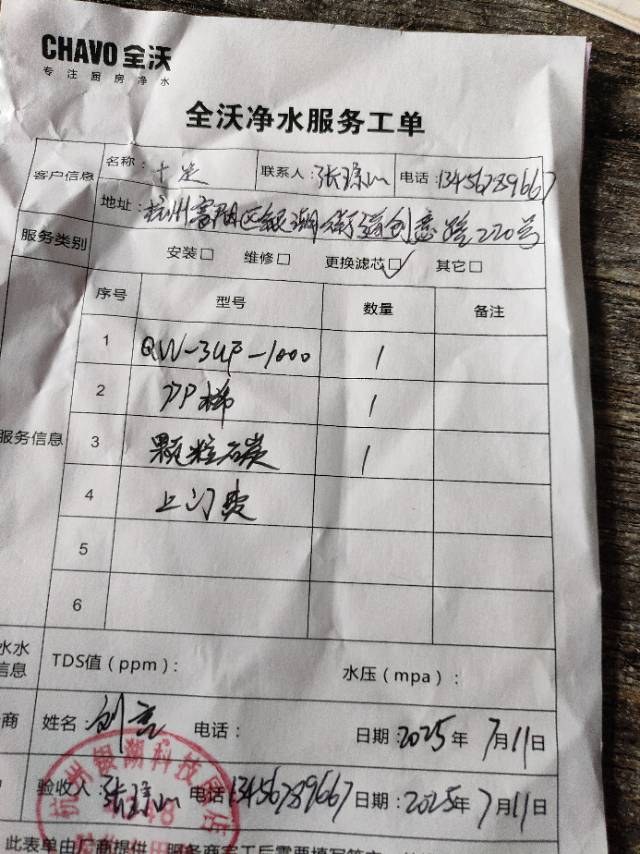 CHAVO 全沃
专注厨房净水
全沃净水服务工单
客户信息 名称: 联系人: 张琼山 电话: 13456789667
地址: 杭州富阳区银湖街道创意路220号
服务类别 安装□ 维修□ 更换滤芯□✓ 其它□
序号 型号 数量 备注
1 QW-3UF-1000 1
2 PP棉 1
服务信息 3 颗粒碳 1
4 上门费
5
6
水水
信息 TDS值(ppm): 水压(mpa):
商 姓名: 电话: 日期: 2025年7月11日
验收人: 张琼山 电话 13456789667 日期: 2025年7月11日
杭州银湖科技
此表单由厂商提供